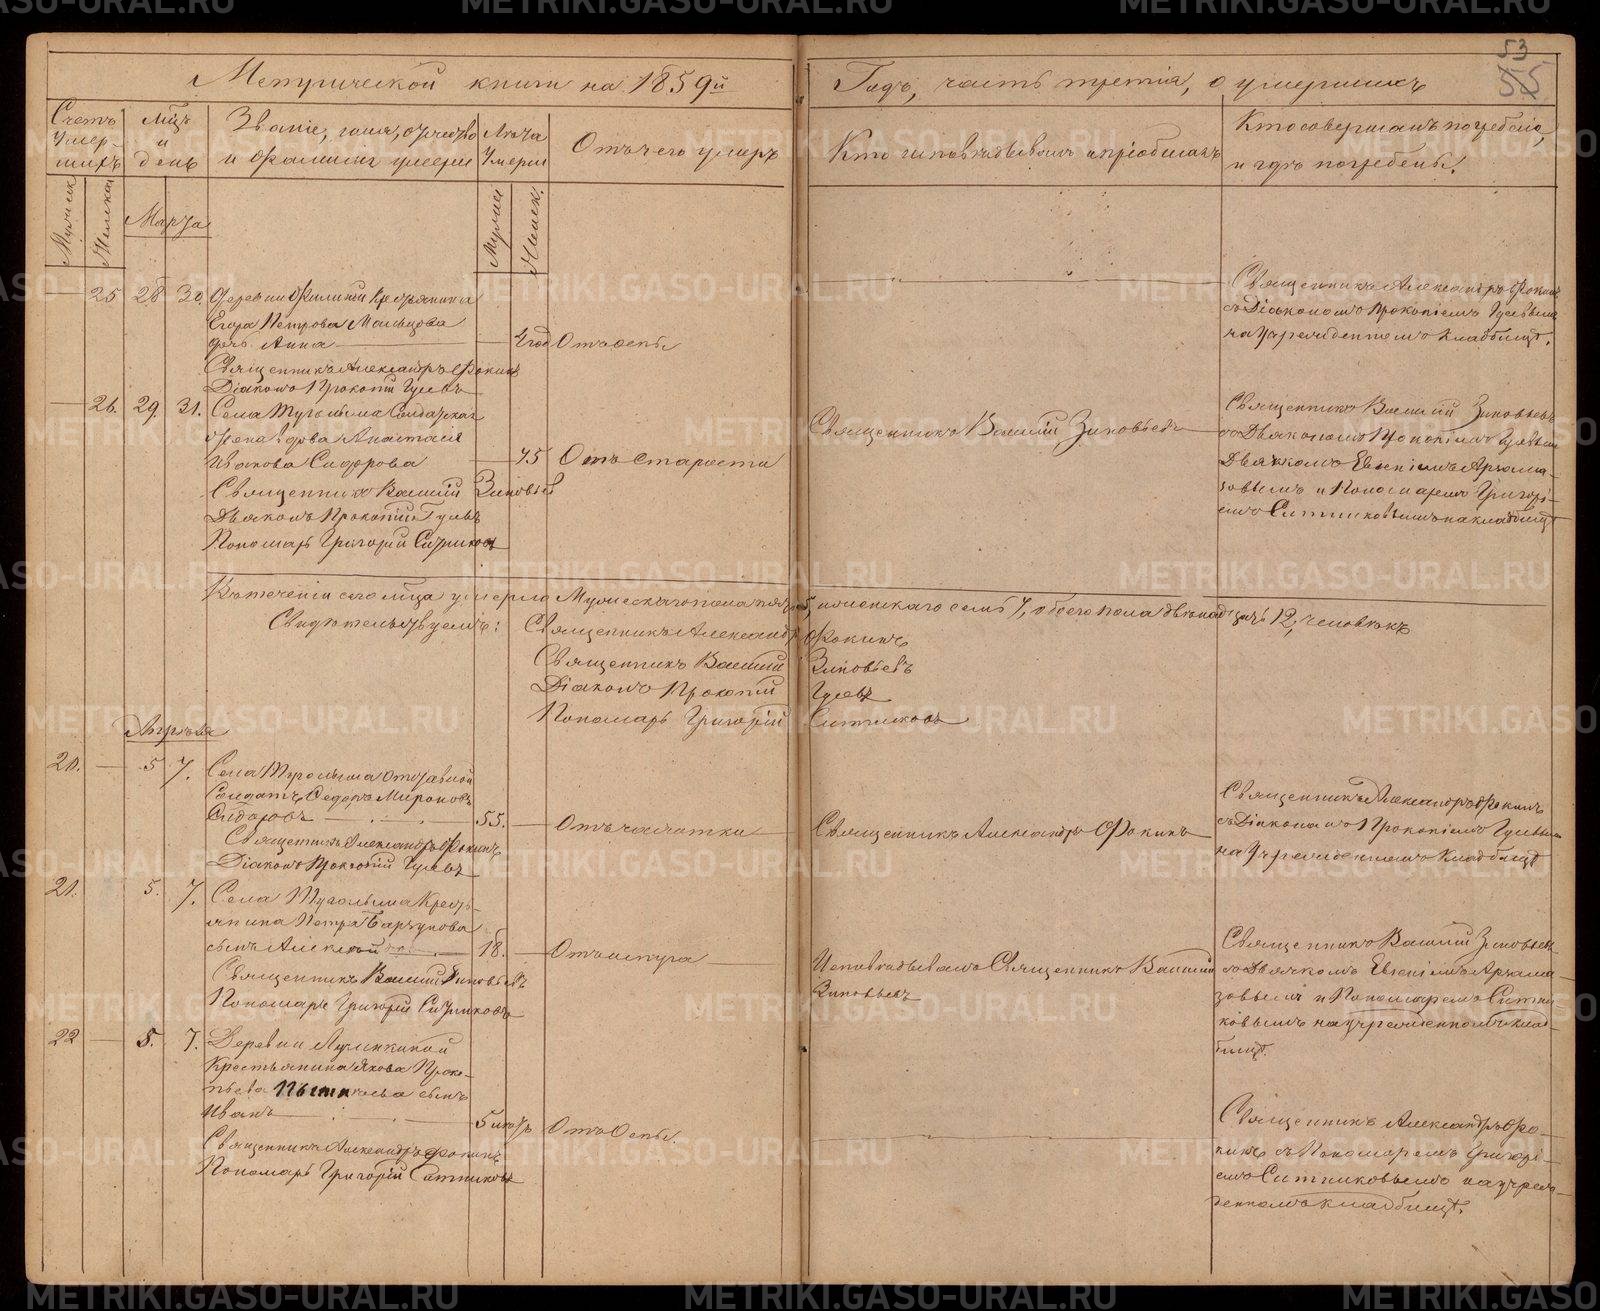 53
55
Метрической книги на 1859й
Годъ, часть третія, о умершихъ
Счетъ умер-шихъ
Мцъ и день
Званіе, имя, отчество
и фамилія умерш
Лѣта Умерш
Отъ чего умеръ
Кто исповѣдывалъ и пріобщалъ
Кто совершалъ погребеніе,
и гдѣ погребены.
Мужеск
Женска
Марта
Мужес
Женск.
25 28 30. Деревни Крестьянина
Егора Петрова Мальцова
дочь Анна
4 год Отъ оспы
Священникъ Александръ Фокинъ
Діаконъ Прокопій Гулевъ
Священникъ Александръ Фокинъ
съ Діакономъ Прокопіемъ
на Учрежденномъ Кладбищѣ.
26. 29. 31. Села Тугулыма Солдатская
Анастасія
Иванова Сидорова
75 Отъ старости
Священникъ Василій Зиновьевъ
Дьяконъ Прокопій Гулевъ
Пономарь Григорій Ситниковъ
Священникъ Василій Зиновьевъ
Священникъ Василій Зиновьевъ
съ Дьякономъ Прокопіемъ
Дьячкомъ Евгеніемъ Арзама-
зовымъ и Пономаремъ Григорі-
емъ Ситниковымъ на кладбищѣ
Въ теченіи сего мѣсяца умерло Мужескаго пола пять 5, женскаго семь 7, обоего пола двѣнадцать 12, человѣкъ
Свидѣтельствуемъ: Священникъ Александръ Фокинъ
Священникъ Василій Зиновьевъ
Діаконъ Прокопій Гулевъ
Пономарь Григорій Ситниковъ
Апрѣля
20. 5 7. Села Тугулыма Отставной
Солдатъ Федоръ Мироновъ
Сидоровъ 55. Отъ чахотки
Священникъ Александръ Фокинъ
Діаконъ Прокопій Гулевъ
Священникъ Александръ Фокинъ
Священникъ Александръ Фокинъ
съ Діакономъ Прокопіемъ
на Учрежденномъ Кладбищѣ
21. 5. 7. Села Тугулыма Кресть-
янина Петра
сынъ Алексѣй 18.
Священникъ Василій Зиновьевъ
Пономарь Григорій Ситниковъ
Исповѣдывалъ Священникъ Василій
Зиновьевъ
Священникъ Василій Зиновьевъ
съ Дьячкомъ Евгеніемъ Арзама-
зовымъ и Пономаремъ Ситни-
ковымъ на учрежденномъ клад-
бищѣ.
22 5. 7. Деревни
Крестьянина Якова Проко-
пьева сынъ
Иванъ
Отъ Оспы.
Священникъ Александръ Фокинъ
Пономарь Григорій Ситниковъ
Священникъ Александръ Фо-
кинъ съ Пономаремъ Григорі-
емъ Ситниковымъ на учреж-
денномъ Кладбищѣ.
METRIKI.GASO-URAL.RU